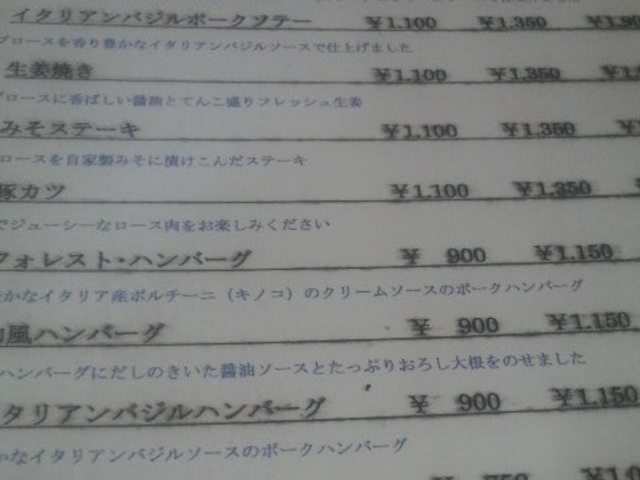 イタリアンバジルポークソテー ¥1.100 ¥1.350
ブロースを香り豊かなイタリアンバジルソースで仕上げました
生姜焼き ¥1.100 ¥1.350
ブロースに香ばしい醤油とてんこ盛りフレッシュ生姜
みそステーキ ¥1.100 ¥1.350 ¥
ロースを自家製みそに漬けこんだステーキ
豚カツ ¥1.100 ¥1.350
でジューシーなロース肉をお楽しみください
フォレスト・ハンバーグ ¥ 900 ¥1.150
かなイタリア産ポルチーニ（キノコ）のクリームソースのポークハンバーグ
風ハンバーグ ¥ 900 ¥1.150
ハンバーグにだしのきいた醤油ソースとたっぷりおろし大根をのせました
タリアンバジルハンバーグ ¥ 900 ¥1.150
かなイタリアンバジルソースのポークハンバーグ